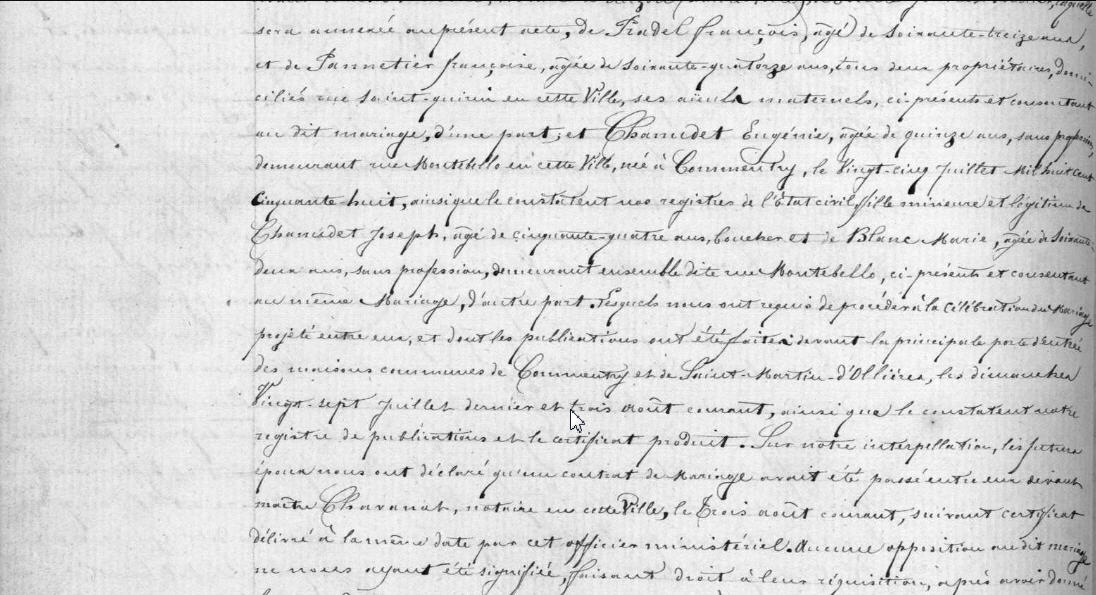 sera annexée au présent acte, de Pradel françois, agé de soixante-treize ans,
et de Pannetier françoise, agée de soixante-quatorze ans, tous deux propriétaires, domi-
ciliés rue Saint-quirin en cette Ville, ses aïeuls maternels, ci-présents et consentant
au dit mariage, d'une part; et Chamdet Eugénie, agée de quinze ans, sans profession,
demeurant rue Montebello en cette Ville, née à Commentry, le Vingt-cinq Juillet Mil huit cent
cinquante-huit, ainsi que le constatent nos registres de l'État civil, fille mineure et légitime de
Chamdet Joseph, agé de cinquante-quatre ans, boucher et de Blanc Marie, agée de soixante-
deux ans, sans profession, demeurant ensemble dite rue Montebello, ci-présents et consentant
au même Mariage, d'autre part. Lesquels nous ont requis de procéder à la célébration du Mariage
projeté entre eux, et dont les publications ont été faites devant la principale porte d'entrée
des maisons communes de Commentry et de Saint-Martin-d'Ollières, les dimanches
Vingt-sept Juillet dernier et trois août courant, ainsi que le constatent notre
registre de publications et le certificat produit. Sur notre interpellation, les futurs
époux nous ont déclaré qu'un contrat de Mariage avait été passé entre eux devant
maître Chavanat, notaire en cette Ville, le Trois août courant, suivant certificat
délivré à la même date par cet officier ministériel. Aucune opposition au dit mariage
ne nous ayant été signifiée, faisant droit à leur réquisition, après avoir donné